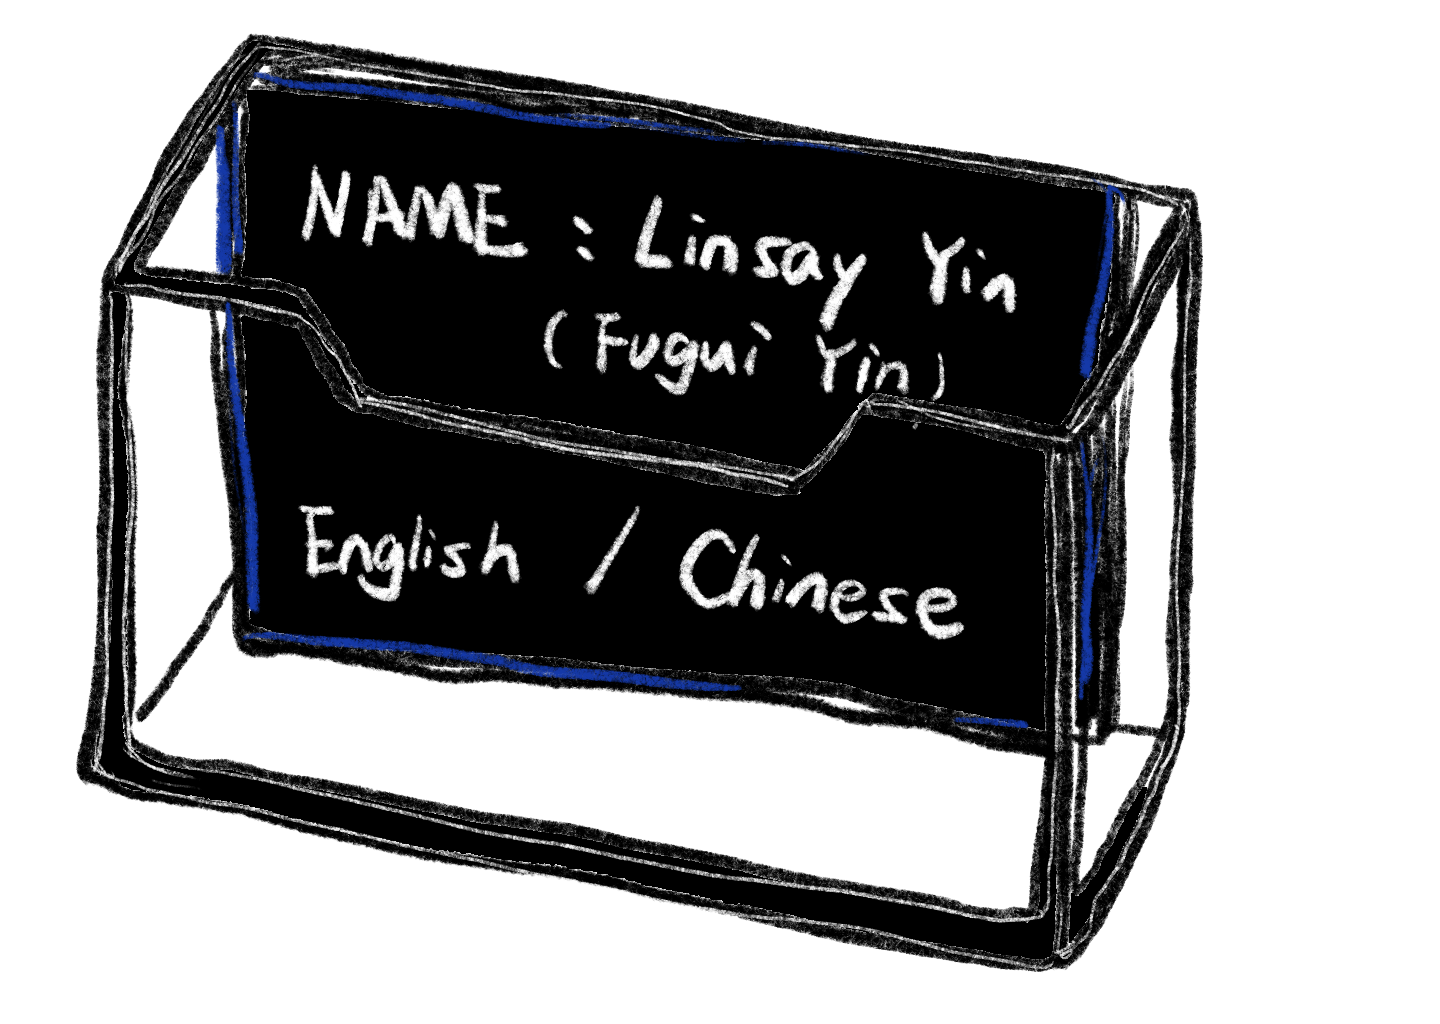 NAME : Linsay Yin
(Fugui Yin)
English / Chinese